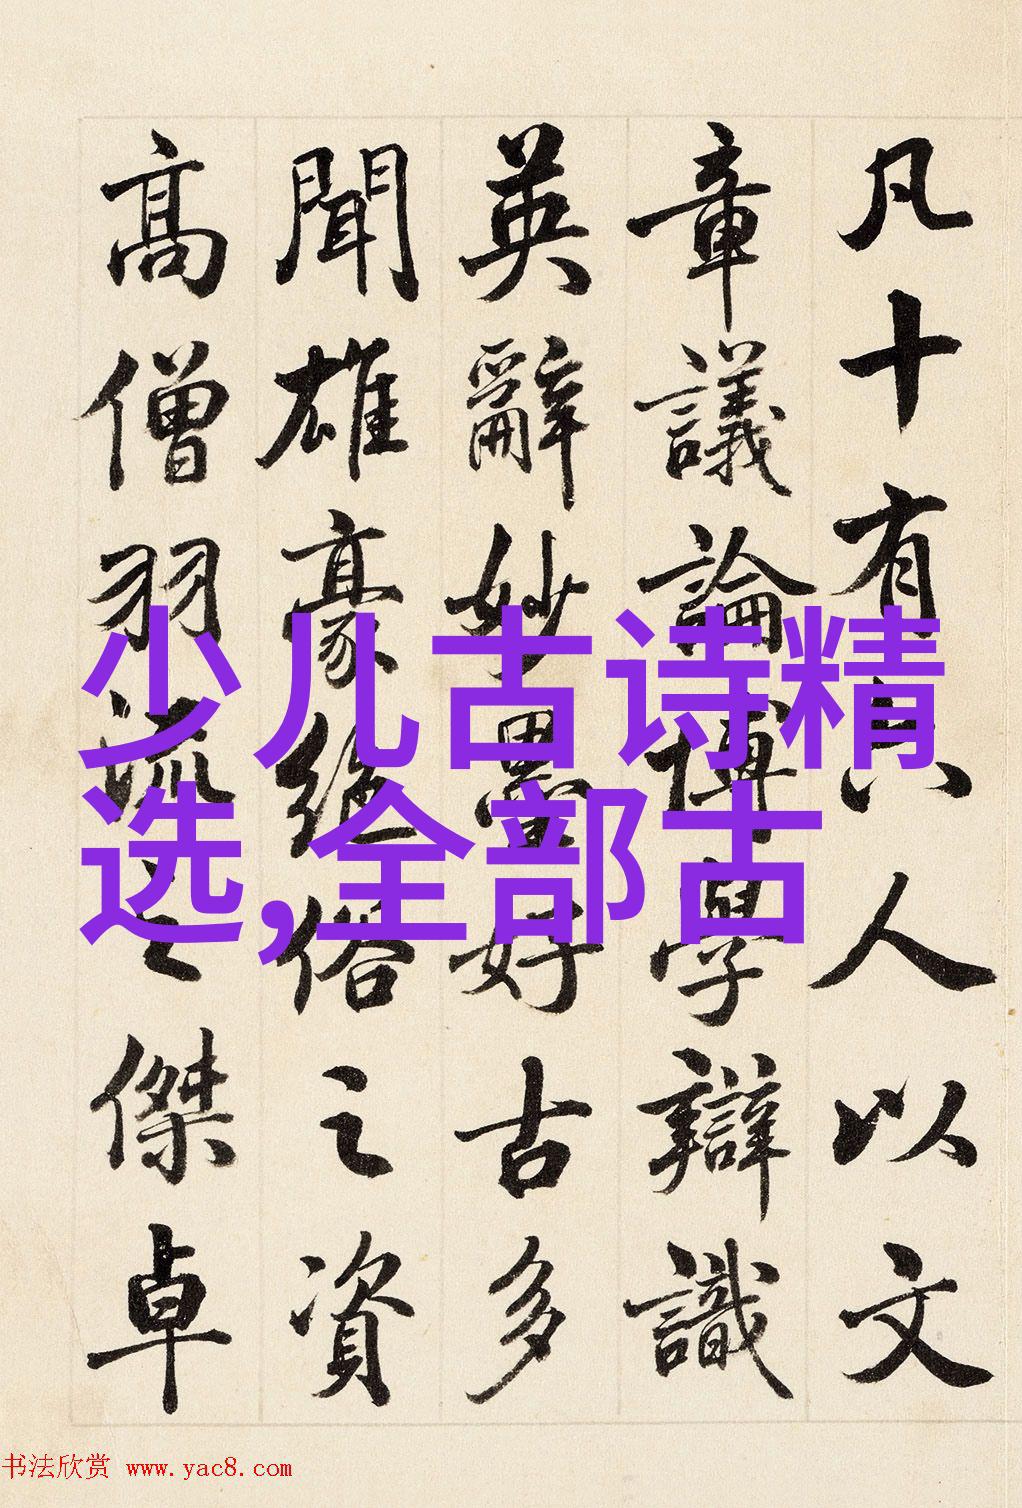 凡十有六人以文
章議論博學辯識
英辭妙墨好古多
聞雄豪絕俗之資
高僧羽流之傑卓
少儿古诗精
选,全部古
书法欣赏 www.yac8.com